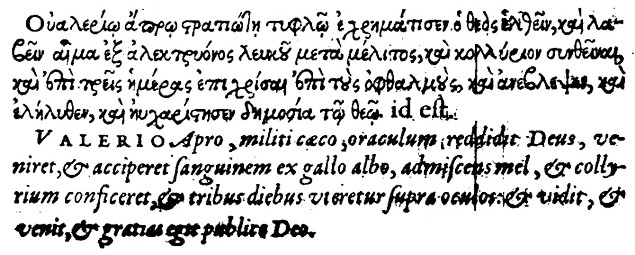 Οὐαλερίῳ ἄπρῳ στρατιώτῃ τυφλῷ ἐχρημάτισεν ὁ θεὸς ἐλθεῖν, καὶ λα-
βεῖν αἷμα ἐξ ἀλεκτρυόνος λευκοῦ μετὰ μέλιτος, καὶ κολλύριον συνθεῖναι,
καὶ ἐπὶ τρεῖς ἡμέρας ἐπιχρῖσαι ἐπὶ τοὺς ὀφθαλμοὺς, καὶ ἀνέβλεψεν, καὶ
ἐλήλυθεν, καὶ ηὐχαρίστησεν δημοσίᾳ τῷ θεῷ. id est.
VALERIO Apro, militi cæco, oraculum reddidit Deus, ve-
niret, & acciperet sanguinem ex gallo albo, admiscens mel, & colly-
rium conficeret, & tribus diebus vteretur supra oculos: & vidit, &
venit, & gratias egit publice Deo.